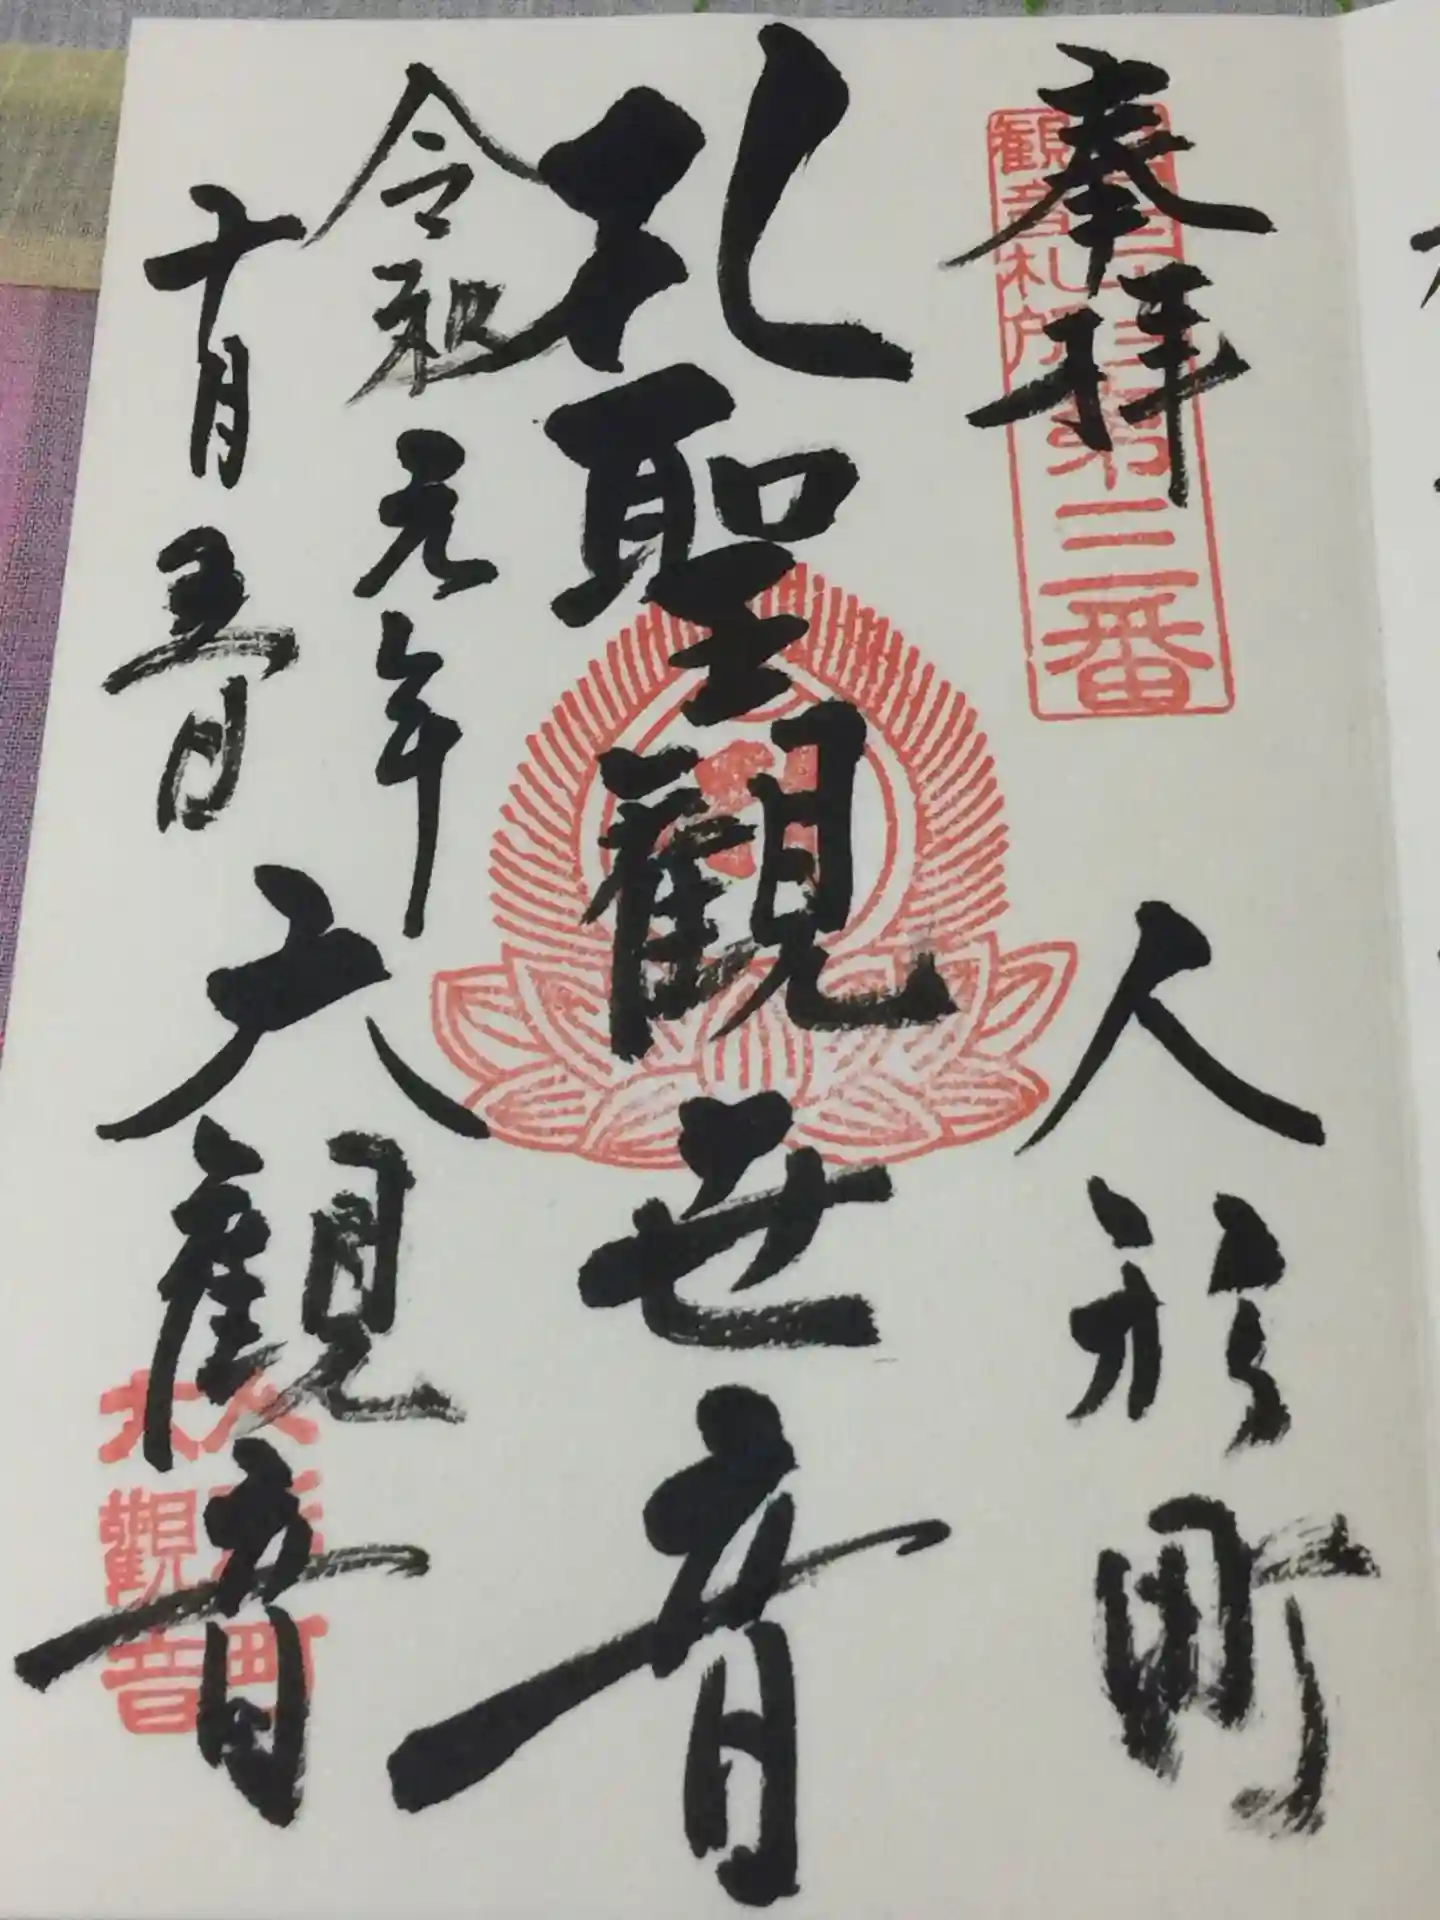 奉拝
観音札所
第三番
人形町
聖観世音
令和元年
十月五日
大観音
人形町
大觀音